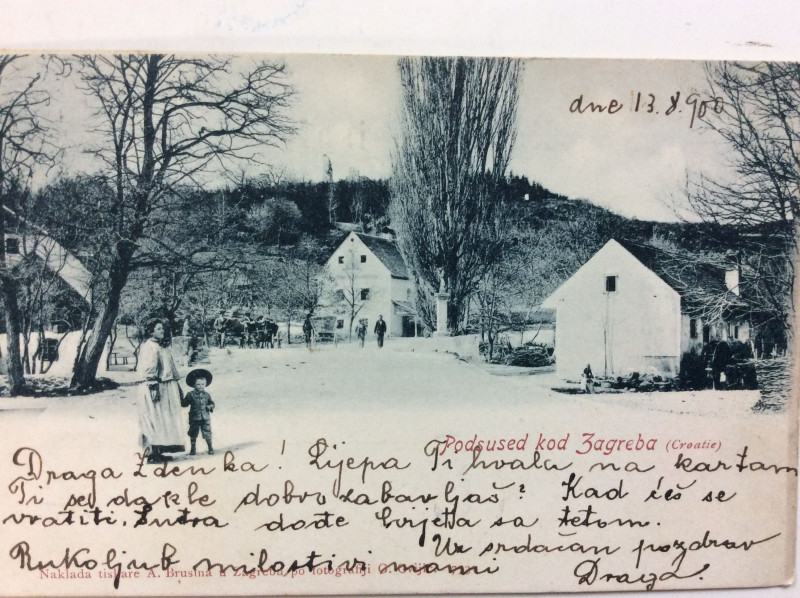 dne 13.8.900
Podsused kod Zagreba (Croatie)
Draga Zdenka! Lijepa Ti hvala na kartam
Ti se dakle dobro zabavljaš? Kad ćeš se
vratiti. Sutra dođe Cvijeta sa tetom.
Uz srdačan pozdrav
Rukoljub milostivi mami
Draga.
Naklada tiskare A. Brusina u Zagrebu po fotografiji